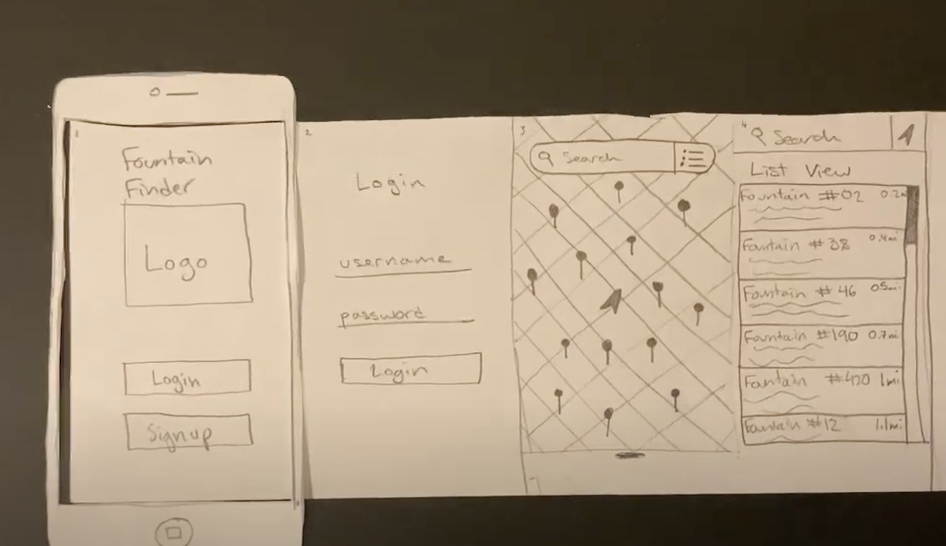 1
Fountain
Finder
Logo
Login
Signup
2
Login
username
password
Login
3
Search
4
Search
List View
Fountain #02 0.2m
Fountain #38 0.4mi
Fountain #46 0.5mi
Fountain #190 0.7mi
Fountain #420 1mi
Fountain #12 1.1mi